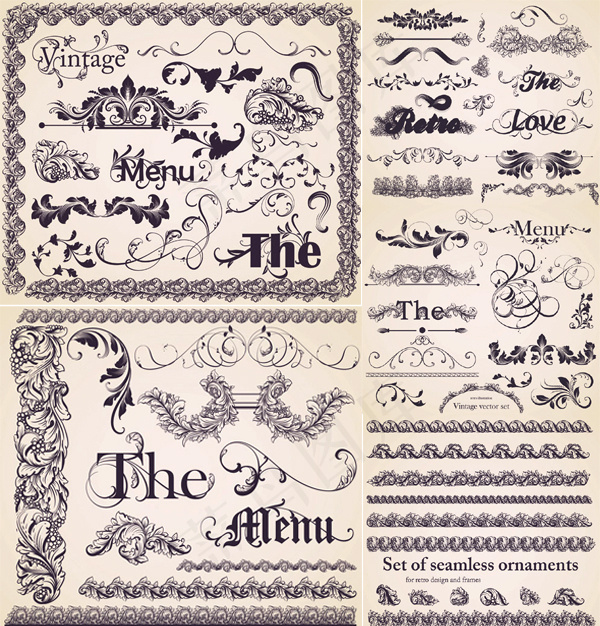 Vintage
Menu
The
The
Menu
The
Retro
Love
Menu
The
Vintage vector set
Set of seamless ornaments
for retro design and frames